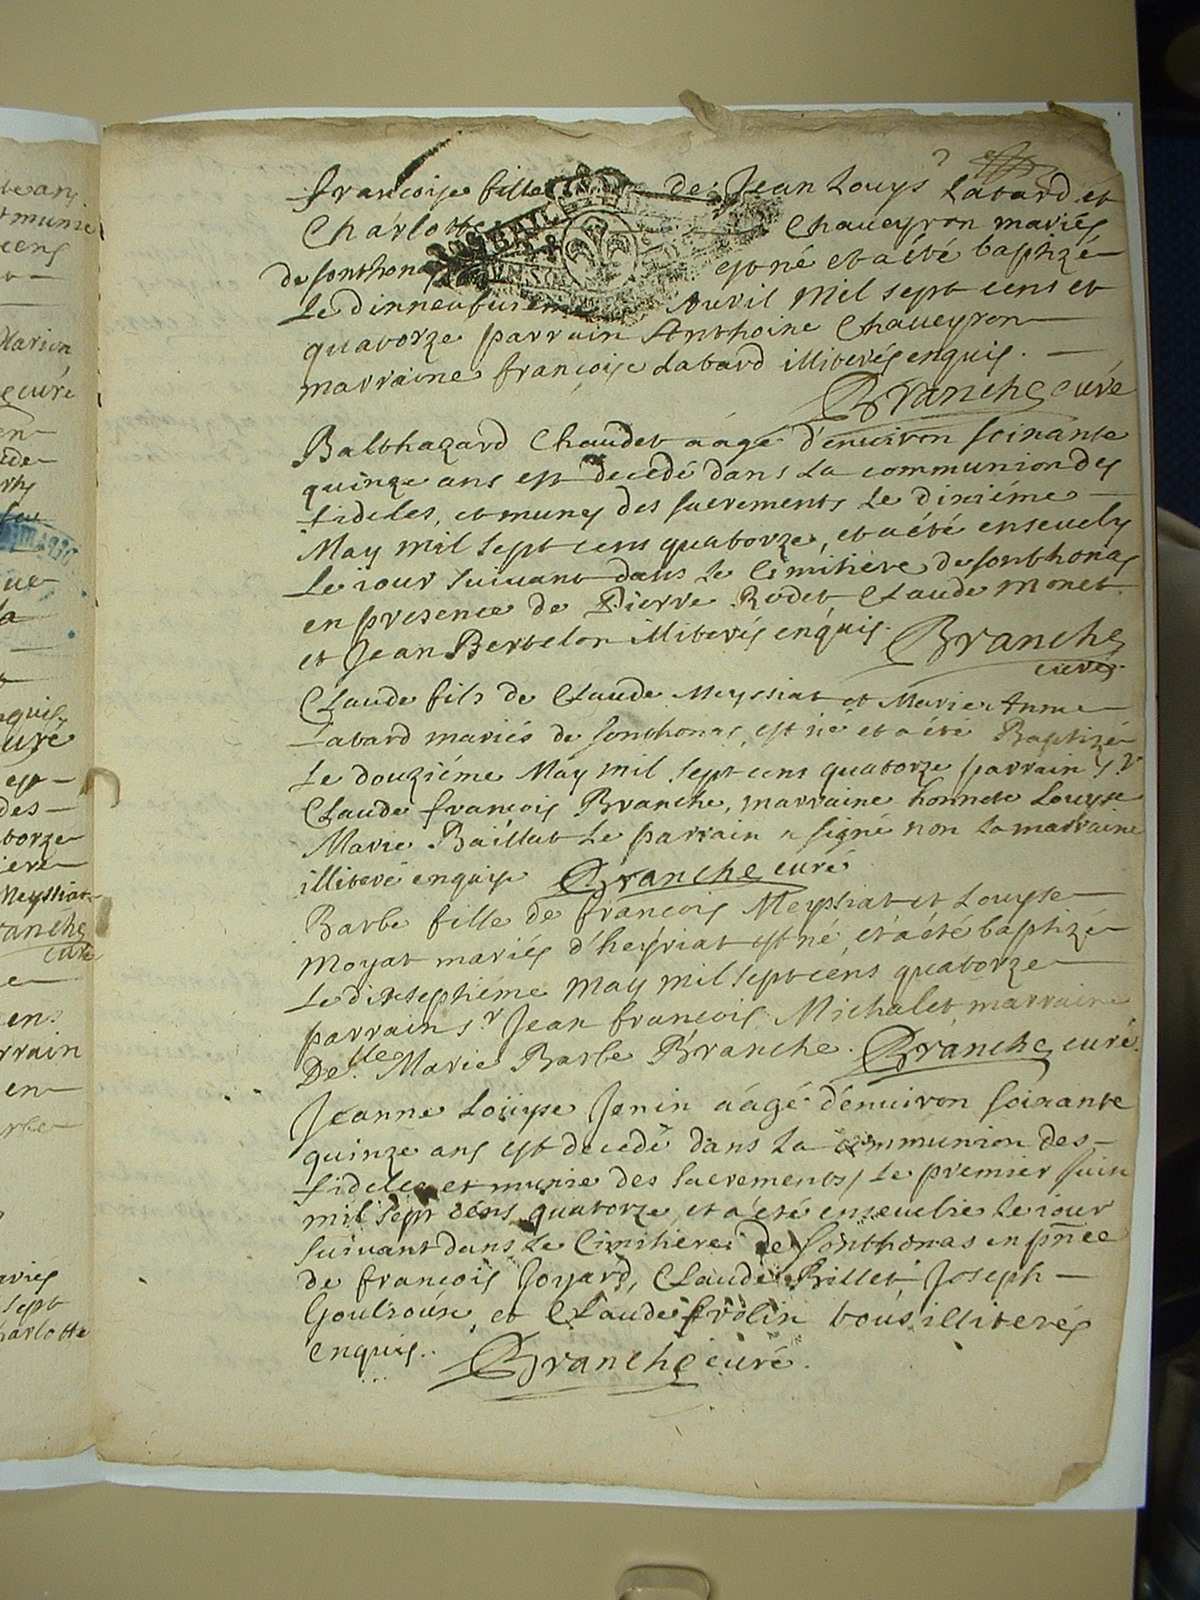 françoise fille de Jean Louys Labard et
Charlotte Chaueyron mariés
de sonthonas est né et a été baptizé
Le dinneufuieme Auril Mil sept cens et
quatorze parrain Anthoine Chaueyron
marraine françoise Labard illiterés enquis.
Branche curé
Balthazard Chaudet aágé d'enuiron soixante
quinze ans est decedé dans La communion des
fideles, et muny des sacrements Le dixiéme
May mil sept cens quatorze, et a été enseuely
Le iour suiuant dans Le Cimitiére de sonthonas
en presence de Pierre Rodet Claude monet
et Jean Bertelon illiterés enquis. Branche
curé
Claude fils de Claude Meyssiat et Marie Anne
Labard mariés de sonthonas, est né et a été Baptizé
Le douziéme May mil sept cens quatorze parrain Sr
Claude françois Branche, marraine honnete Louyse
Marie Baillat Le parrain a signé non La marraine
illiteré enquise Branche curé
Barbe fille de françois Meyssiat et Louyse
Moyat mariés d'heyriat est né, et a été baptizé
Le dixseptiéme May mil sept cens quatorze
parrain Sr Jean françois Michalet marraine
Delle Marie Barbe Branche. Branche curé.
Jeanne Loüyse Jenin aágé d'enuiron soixante
quinze ans est decedé dans La communion des
fideles et munie des sacrements, Le premier Juin
mil sept cens quatorze et a été enseuelie Le iour
suiuant dans Le Cimitiere de sonthonas en pñce
de françois Joyard, Claude Billet Joseph
et Claude frolin tous illiterés
enquis. Branche curé.